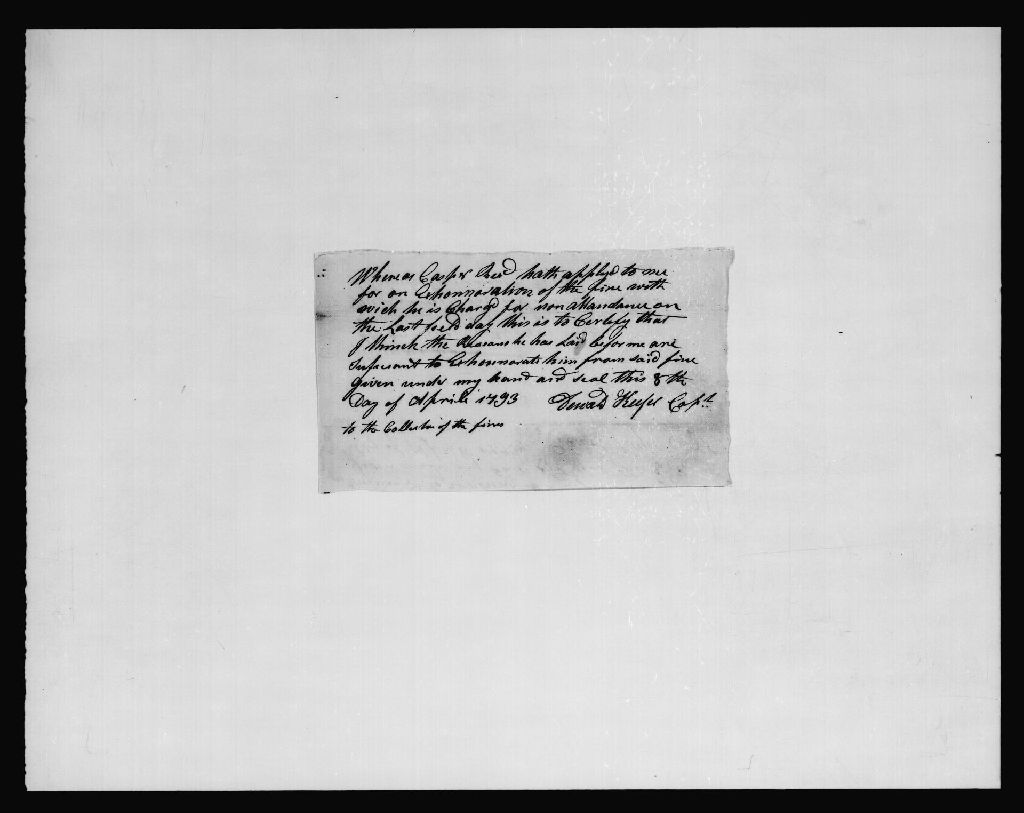 Whereas Casper Reed hath applyd to me
for an Exhonnoration of the fine with
wich he is Charg'd for non attendance on
the Last field day this is to Certefy that
I think the Reasons he has laid before me are
Sufficiant to Exhonnorate him from said fine
Given under my hand and seal this 8th
Day of April 1793 Capt
to the Collector of the fines